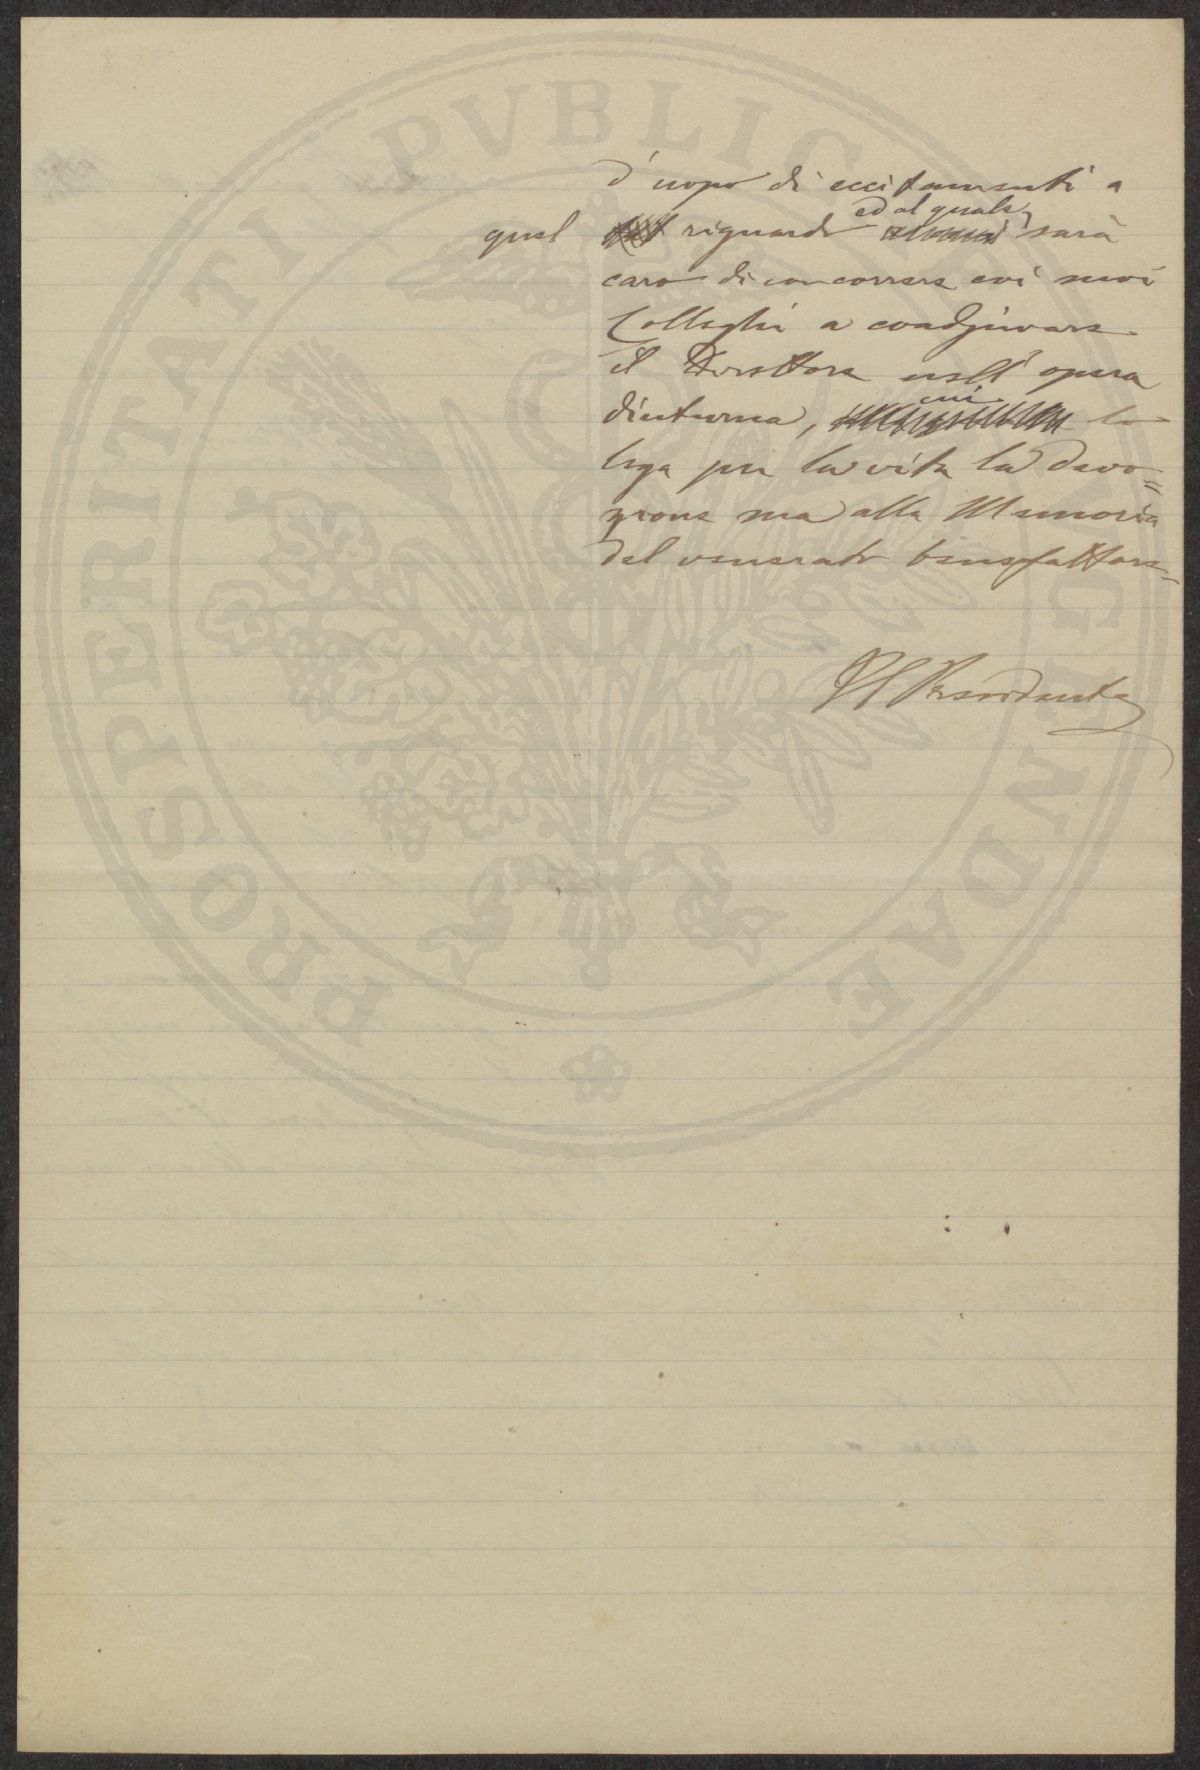 d'uopo di eccitamenti a
ed al quale
quel riguardo sarà
caro di concorrere coi suoi
Colleghi a coadjuvare
il Direttore nell'opera
cui
diuturna, lo
lega per la vita la devo=
zione sua alla Memoria
del venerato benefattore=
Il Presidente
PROSPERITATI PVBLICAE AVGENDAE